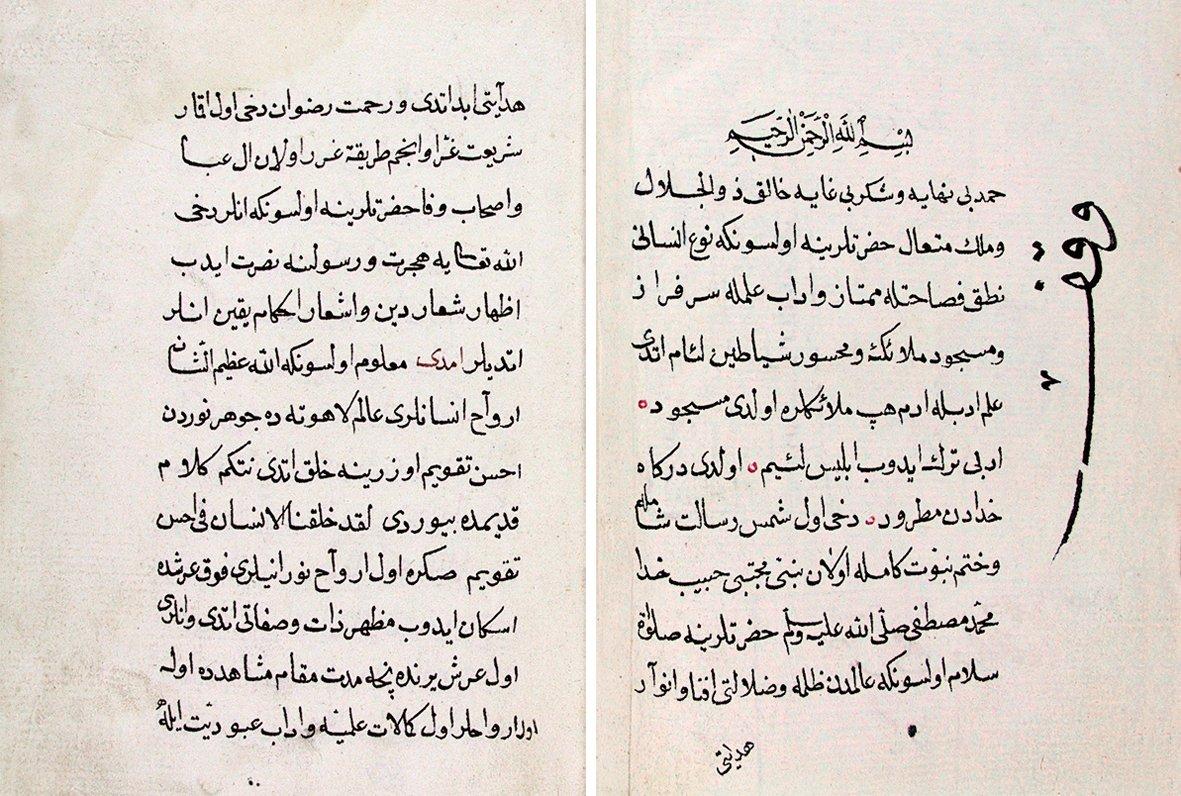 بسم الله الرحمن الرحيم
حمد بى نهايه وشكر بى غايه خالق ذو الجلال
وملك متعال حضرتلرينه اولسونكه نوع انسانى
نطق فصاحتله ممتاز واداب علمله سرفراز
ومسجود ملائكه ومحسور شياطين لئام اتدى
علم ادبله ادم هپ ملائكلره اولدى مسجود
ادبى ترك ايدوب ابليس لئيم اولدى دركاه
خدادن مطرود دخى اول شمس رسالت
وختم نبوت كامله اولان نبئ مجتبى حبيب خدا
محمد مصطفى صلى الله عليه وسلم حضرتلرينه صلوة
سلام اولسونكه عالمدن ظلمه وضلالتى افنا وانوار
هدايتى
وقف
هدايتى ابد اتدى ورحمت رضوان دخى اول اقمار
شريعت غرا وانجم طريقة غرر اولان ال عبا
واصحاب وفا حضرتلرينه اولسونكه انلر دخى
الله تعالىيه هجرت ورسولنه نصرت ايدب
اظهار شعار دين واشعار احكام يقين انلر
اتديلر امدى معلوم اولسونكه الله عظيم الشان
ارواح انسانلرى عالم لاهوته ده جوهر نوردن
احسن تقويم اوزرينه خلق اتدى نتكم كلام
قديمده بيوردى لقد خلقنا الانسان فى احسن
تقويم صكره اول ارواح نورانيلرى فوق عرشده
اسكان ايدوب مظهر ذات وصفاتى اتدى وانلرى
اول عرش يرنده نچه مدت مقام مشاهدده اوله
اول ارواحلر اول كمالات علميه واداب عبوديت ايله